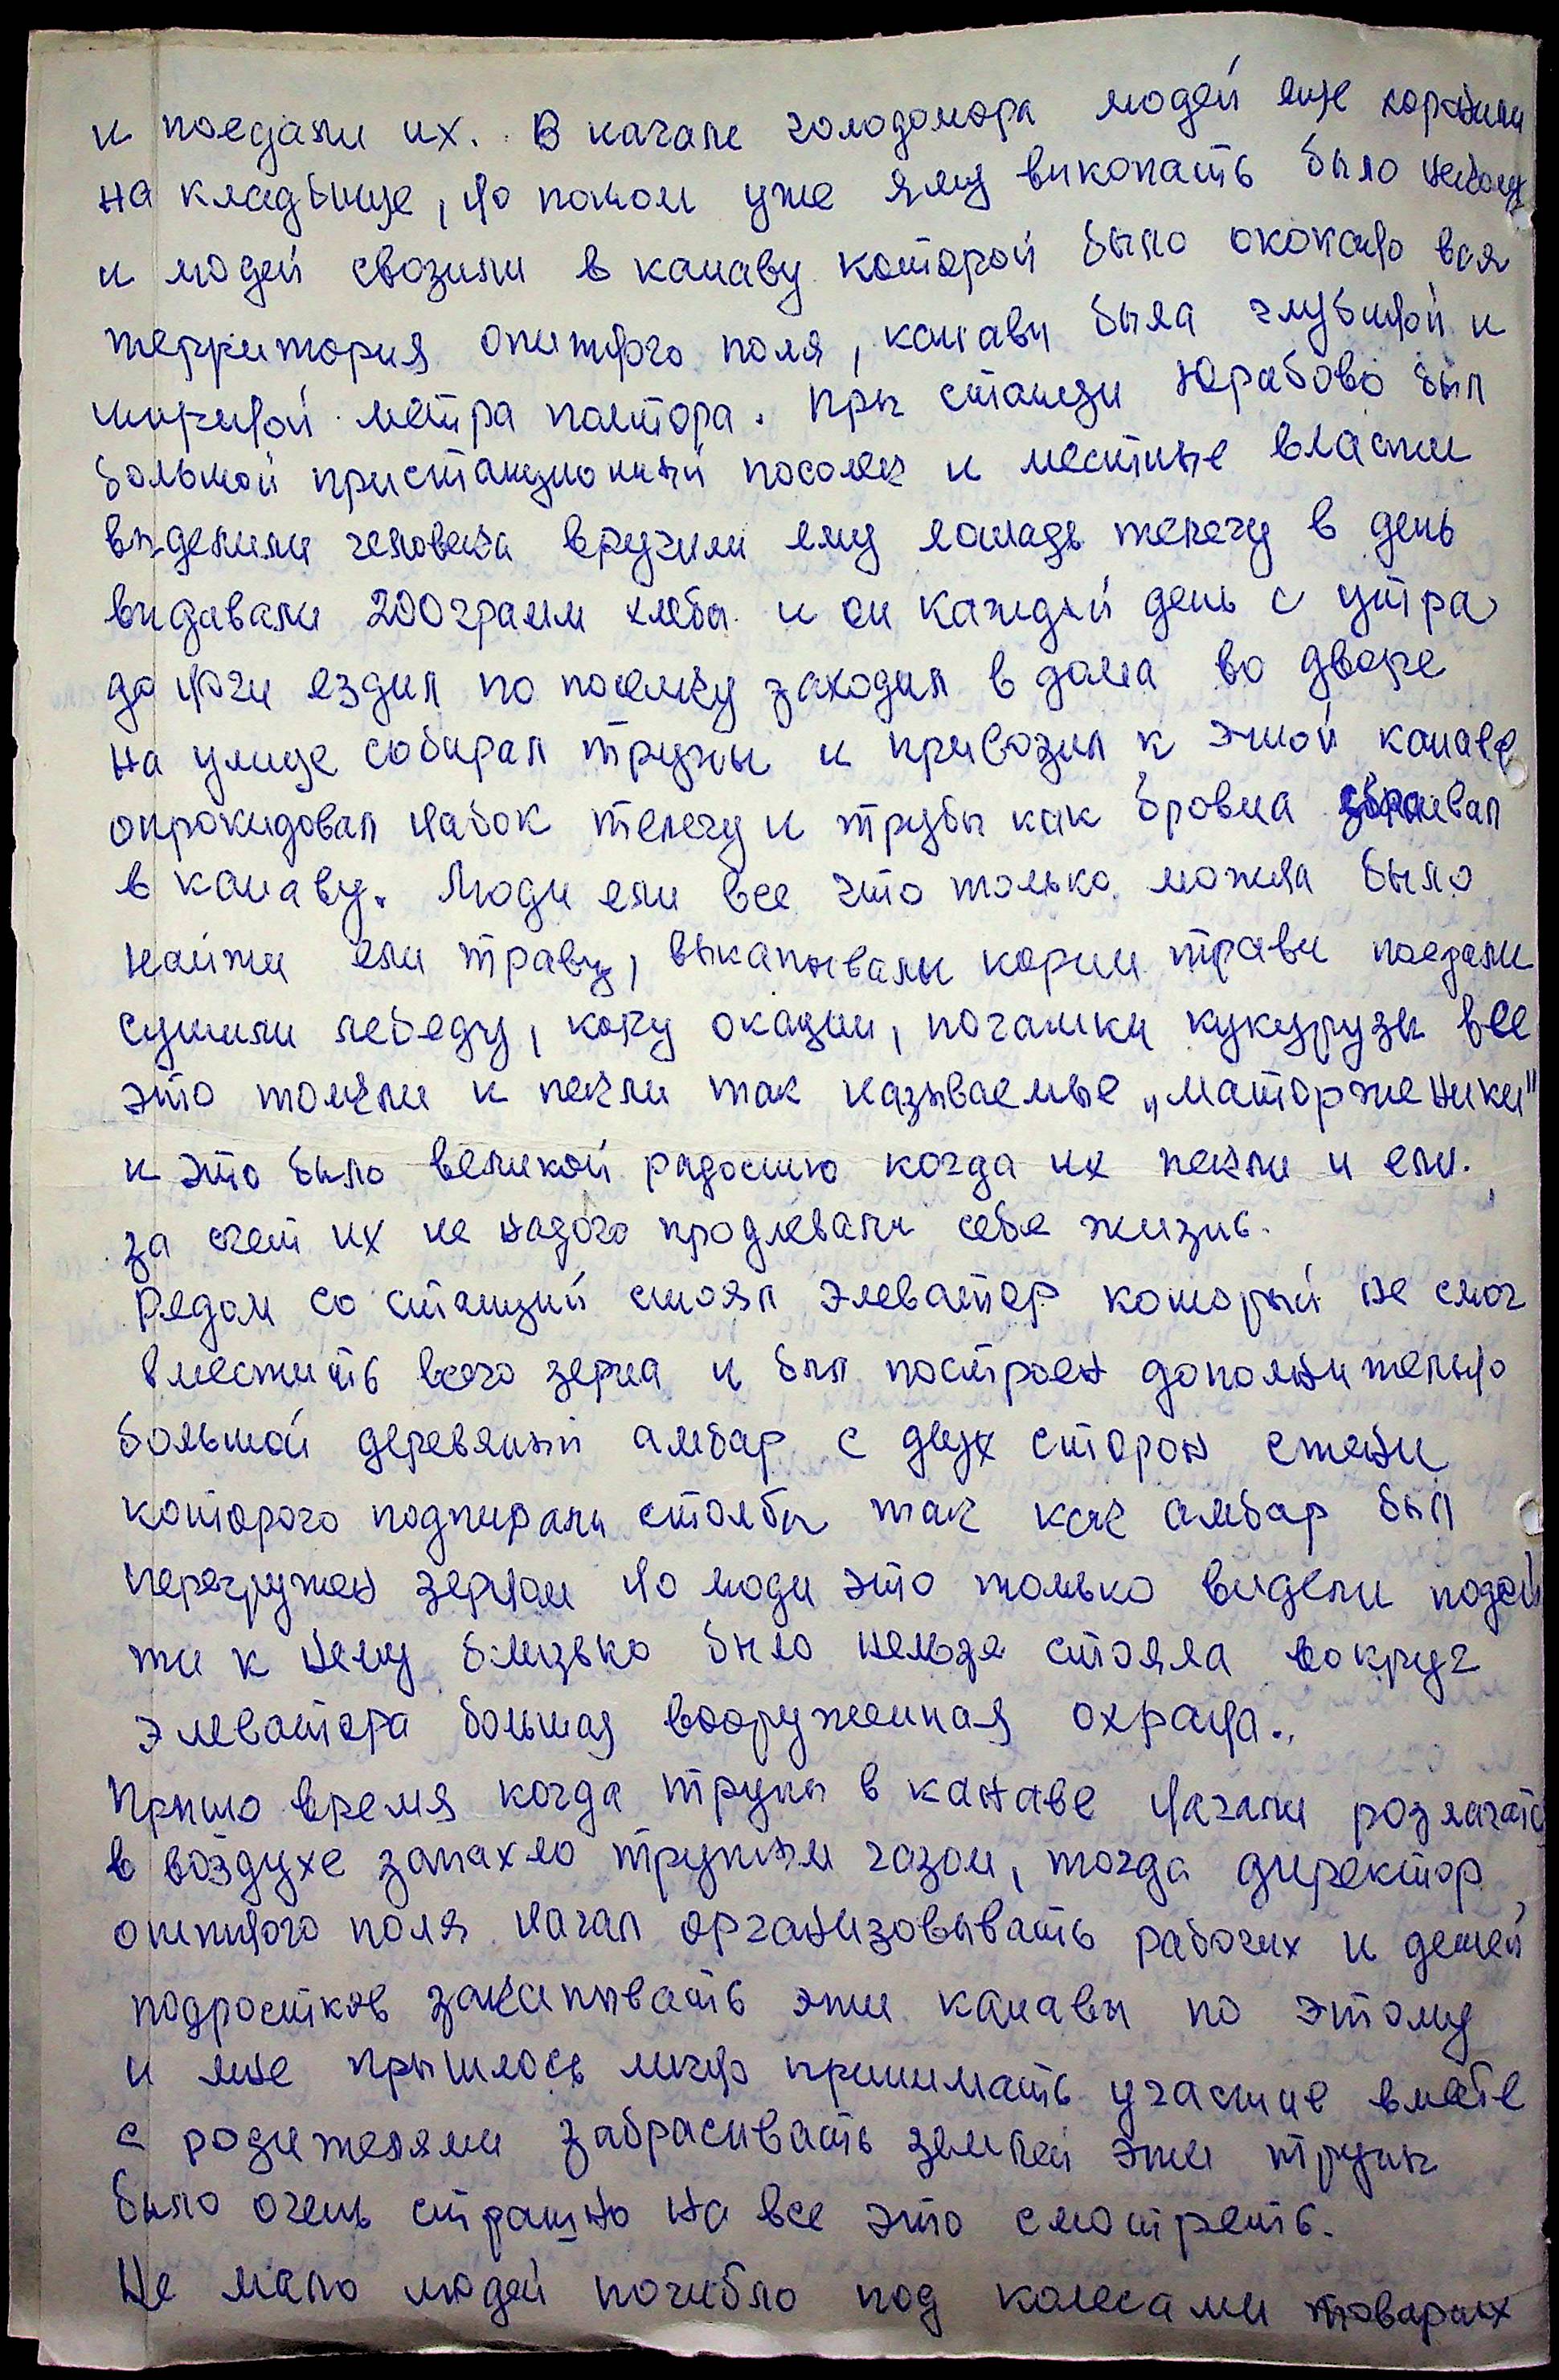 и поедали их. В начале голодомора людей еще хоронили
на кладбище, но потом уже яму викопать было некому
и людей свозили в канаву которой было окопано вся
территория опитного поля, канави была глубиной и
шириной метра полтора. При станции Юрабово был
большой пристанционный посолек и местные власти
виделили человека вручили ему лошадь телегу в день
видавали 200грамм хлеба и он каждый день с утра
до ночи ездил по поселку заходил в дома во дворе
на улице собирал трупы и привозил к этой канаве
опрокидовал набок телегу и трубы как бровна
в канаву. Люди ели все что только можна было
найти ели траву, выкапывалы корни трави поедали
сушили лебеду, кору окации, початки кукурузы все
это толкли и пекли так называемые „маторженики"
и это было великой радостю когда их пекли и ели.
за счет их не надого продлевали себе жизнь.
Редом со станций стоял элеватор который не смог
вместить всего зерна и был построен дополнительно
большой деревяный амбар с двух сторон стени
которого подпирали столбы так как амбар был
перегружен зерном но люди это только видели подой
ти к нему близько было нельзе стояла вокруг
элеватора большая вооруженная охрана.
Пришло время когда трупы в канаве начали розлагатс
в воздухе запахло трупным газом, тогда директор
опитного поля начал организовывать рабочих и детей
подростков закапывать эти канавы по этому
и мне прышлось лично принимать участие вместе
с родителями забрасивать землей эти трупы
было очень страшно на все это смотреть.
Не мало людей погибло под колесами товарных